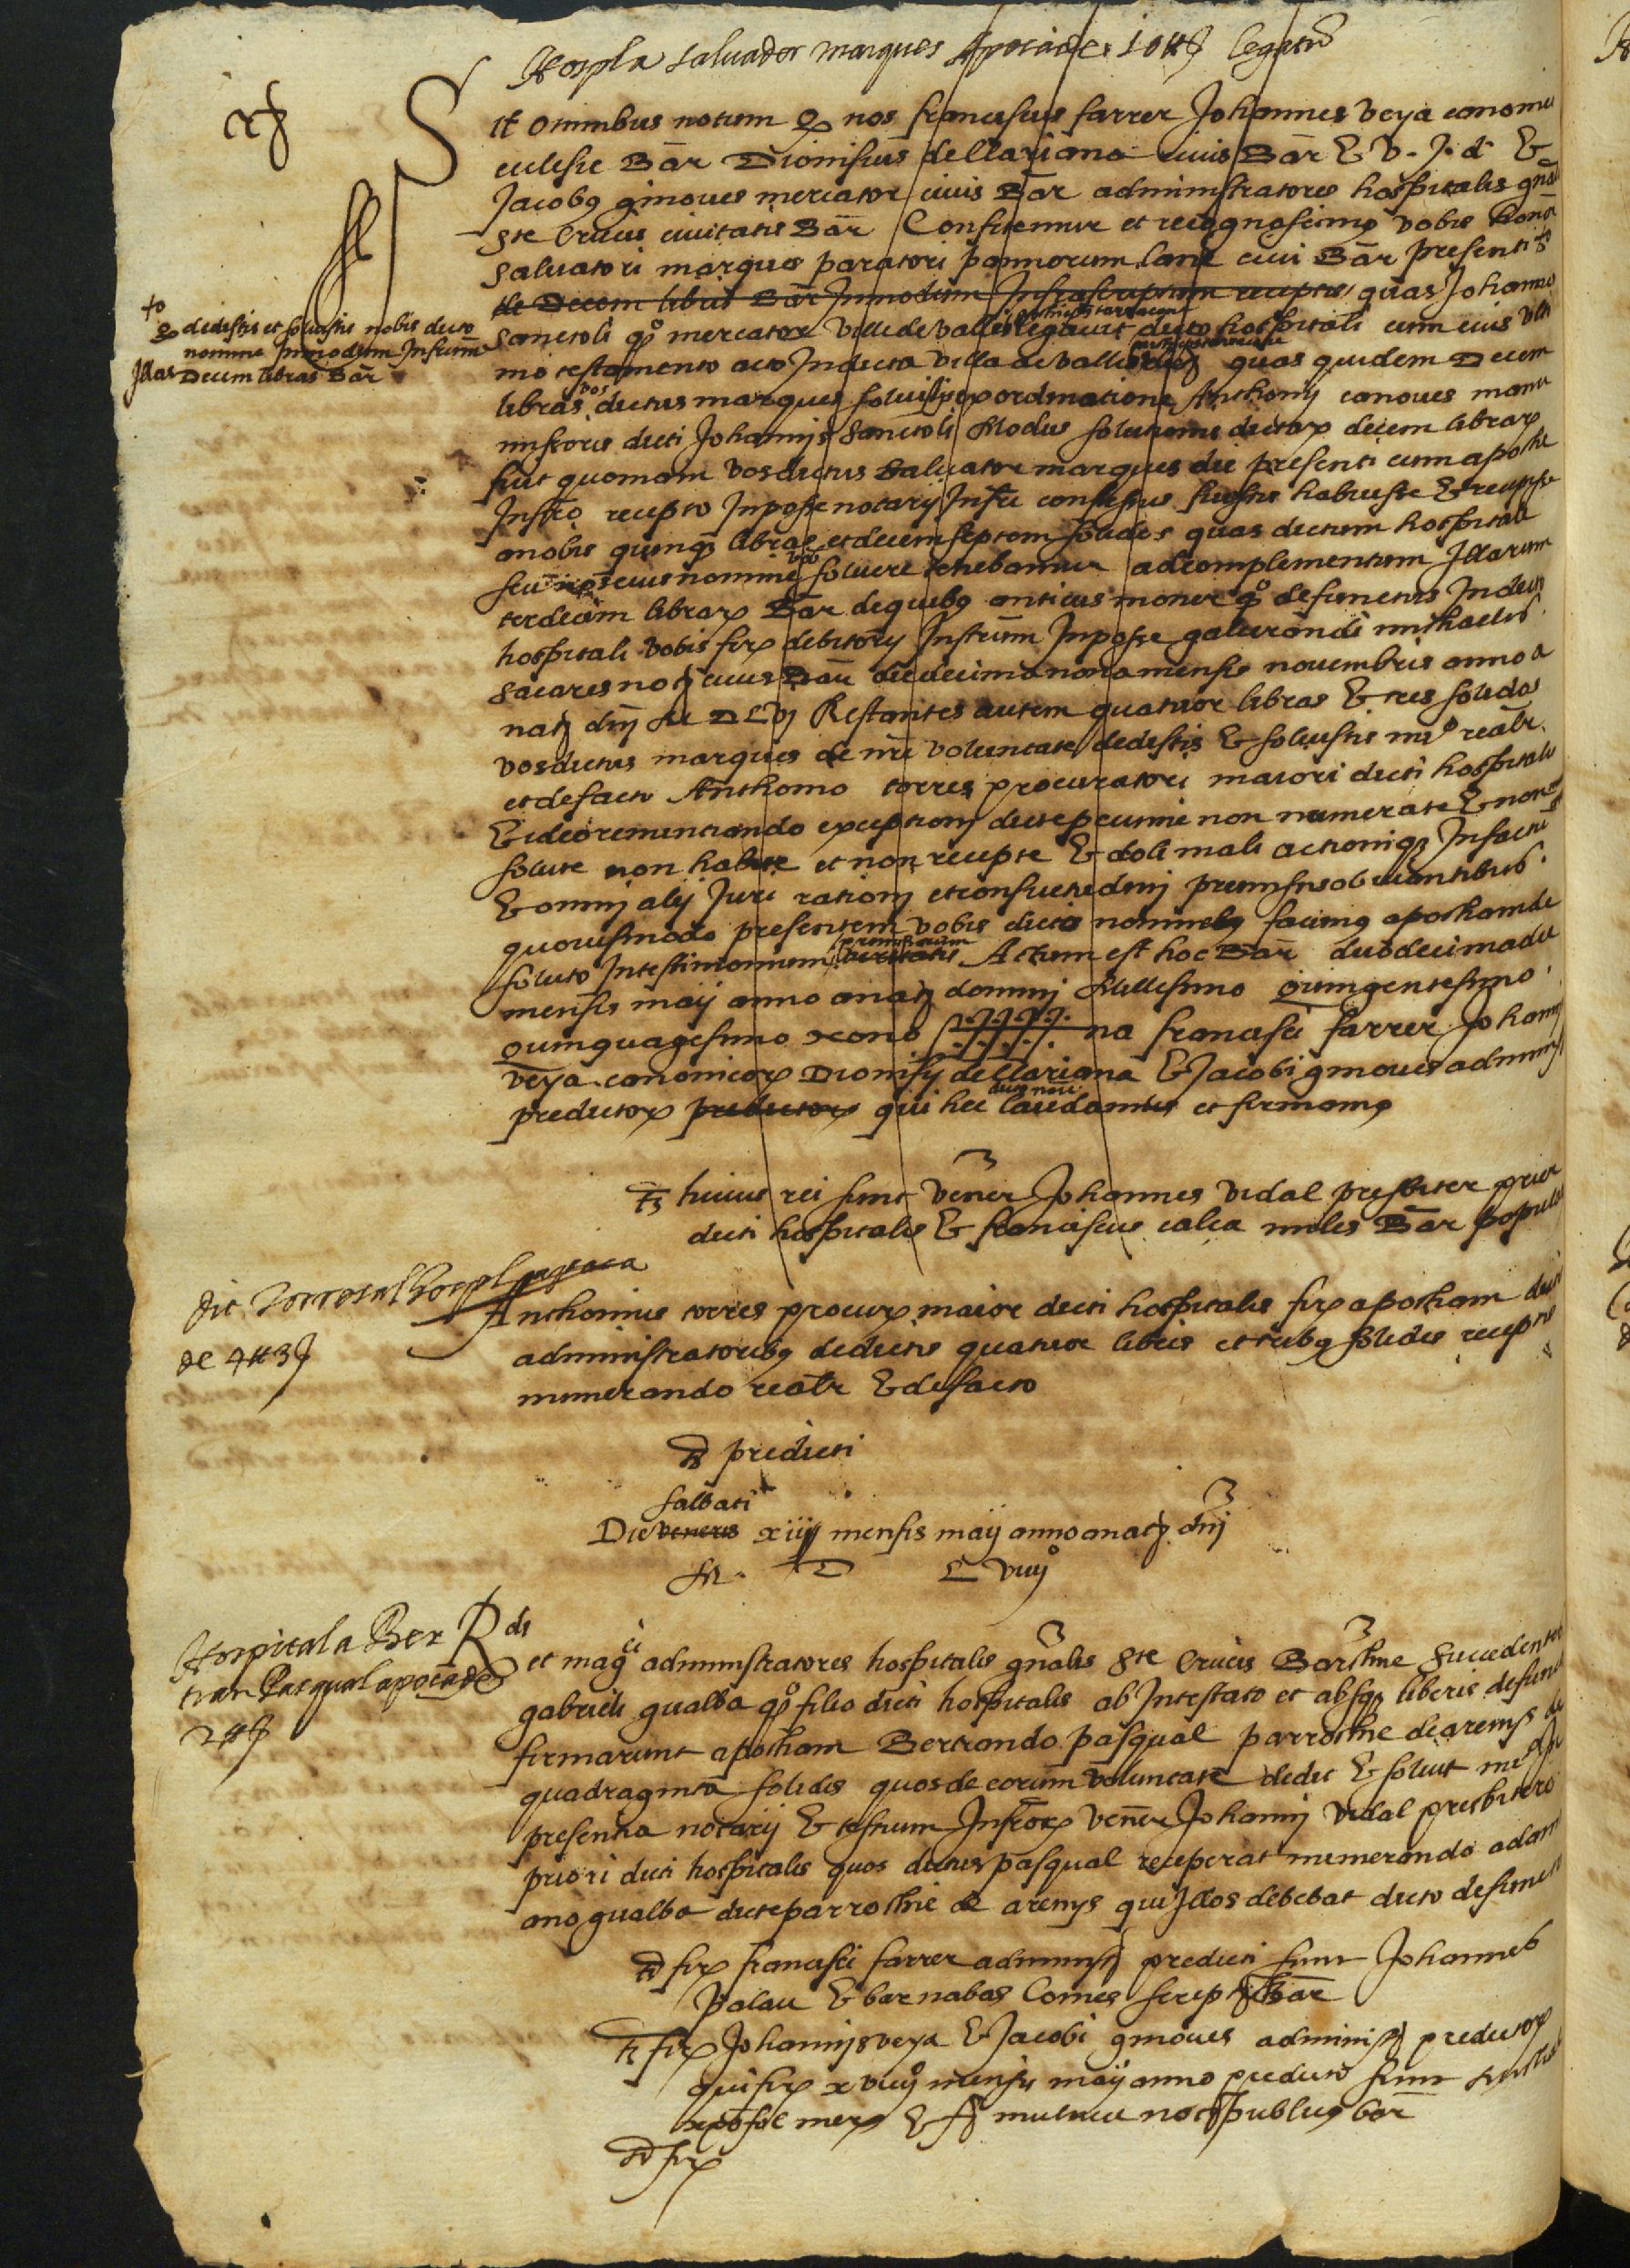 Hospl a salvador marques Apocha de 10 ₶ legat
Sit omnibus notum q nos franciscus farrer Johannes veya canonici
ecclesie Bar Dionisius dellariana civis Bar & V. J. d. &
Jacobq ginoves mercator civis Bar administratores hospitalis gnal
Ste Crucis civitatis Bar Confitemur et recognoscimq vobis honor
salvatori marques paratori pannorum lane civi Bar presenti
+
q dedistis et solvistis nobis dicto
nomine Inmodum Infrum
Illas Decem libras Bar
de Decem libris Bar Inmodum Infrascriptum receptis quas Johannes
Sanctoli qº mercator Ville de valles legavit dicto hospitali cum eius ulti
mo testamento acto Indicta villa de valles quas quidem Decem
libras vos dictus marques solvistis ex ordinatione Anthonij canoves manu
missoris dicti Johannis Sanctoli Modus solutionis dictarx decem librarx
fuit quoniam vos dictus salvator marques die presenti cum apocha
Infrº recepto Inposse notarij Infri confessus fuistis habuisse & recepisse
anobis quinqz libras et decem septem solidos quas dictum hospitale
seu nos eius nomine vobis solvere tenebamur adcomplementum Illarum
terdecim librarx Bar dequibq anticus moner qº defunctus Indicto
hospitali vobis firx debitorij Instrum Inposse galcerandi michaelis
sacares not civis Bar die decima nona mensis novembris anno a
nat dnj M D L Vj Restantes autem quatuor libras & tres solidos
vos dictus marques de nri voluntate dedistis & solvistis nrº realr
et defacto Anthonio torres procuratori maiori dicti hospitalis
& ideo renuntiando exceptionj dicte pecunie non numerate & non
solute non habite et non recepte & doli mali actioniqz Infactu
& omnj alij Juri rationj etconsuetudinj premissis obviantibus
quovismodo presentem vobis dictis nominebq facimq apocham de
soluto Intestimonium premissorum Actum est hoc Bar duodecima die
mensis maij anno anat dominj Millesimo quingentesimo
quinquagesimo nono S na francisci farrer Johanj
veya canonicorx Dionisij dellariana & Jacobi ginoves administ
predictorx predictorx qui hec dicto noie laudamus et firmamq
ts huius rei sunt Vener Johannes vidal presbiter prior
dicti hospitalis & franciscus calca miles Bar populati
dit Torres al hospl
de 4 ₶ 3 ſ
Anthonius torres procurx maior dicti hospitalis firx apocham dicti
administratoribq dedictis quatuor libris et tribq solidis receptis
numerando realr & defacto
ts predicti
sabbati
Die veneris xiij mensis maij anno anat dnj
M D L viiijº
Hospital a Ber
tran Pasqual apoca de
2 ₶
Rdi
et magci administratores hospitalis gnalis Ste Crucis Barchne Succedentes
gabrieli gualba qº filio dicti hospitalis ab Intestato et absqz liberis defuncti
firmarunt apocham Bertrando pasqual parrochie de arenys de
quadraginta solidis quos de eorum voluntate dedit & solvit
presentia notarij & testium Infrorx Vener Johannj Vidal presbitero
priori dicti hospitalis quos dictus pasqual receperat numerando adam
ano gualba dicte parrochie de arenys qui Illos debebat dicto defuncto
ts firx francisci farrer administ predicti sunt Johannes
Palau & barnabas Comes script Bar
ts firx Johannis veya & Jacobi ginoves administ predictorx
qui firx xviiijº mensis maij anno predicto sunt
merx & not publicq bar
ts firx